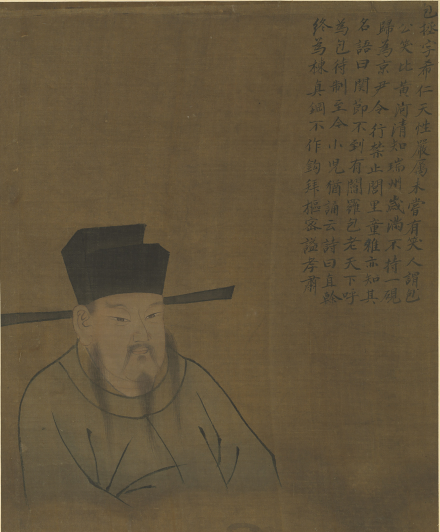 包拯字希仁天性嚴厲未嘗有笑人謂包
公笑比黃河清知端州歲滿不持一硯
歸為京尹令行禁止閭里童稚亦知其
名語曰関節不到有閻羅包老天下呼
為包待制至今小兒猶誦云詩曰直幹
終為棟真鋼不作鈎拜樞密諡孝肅